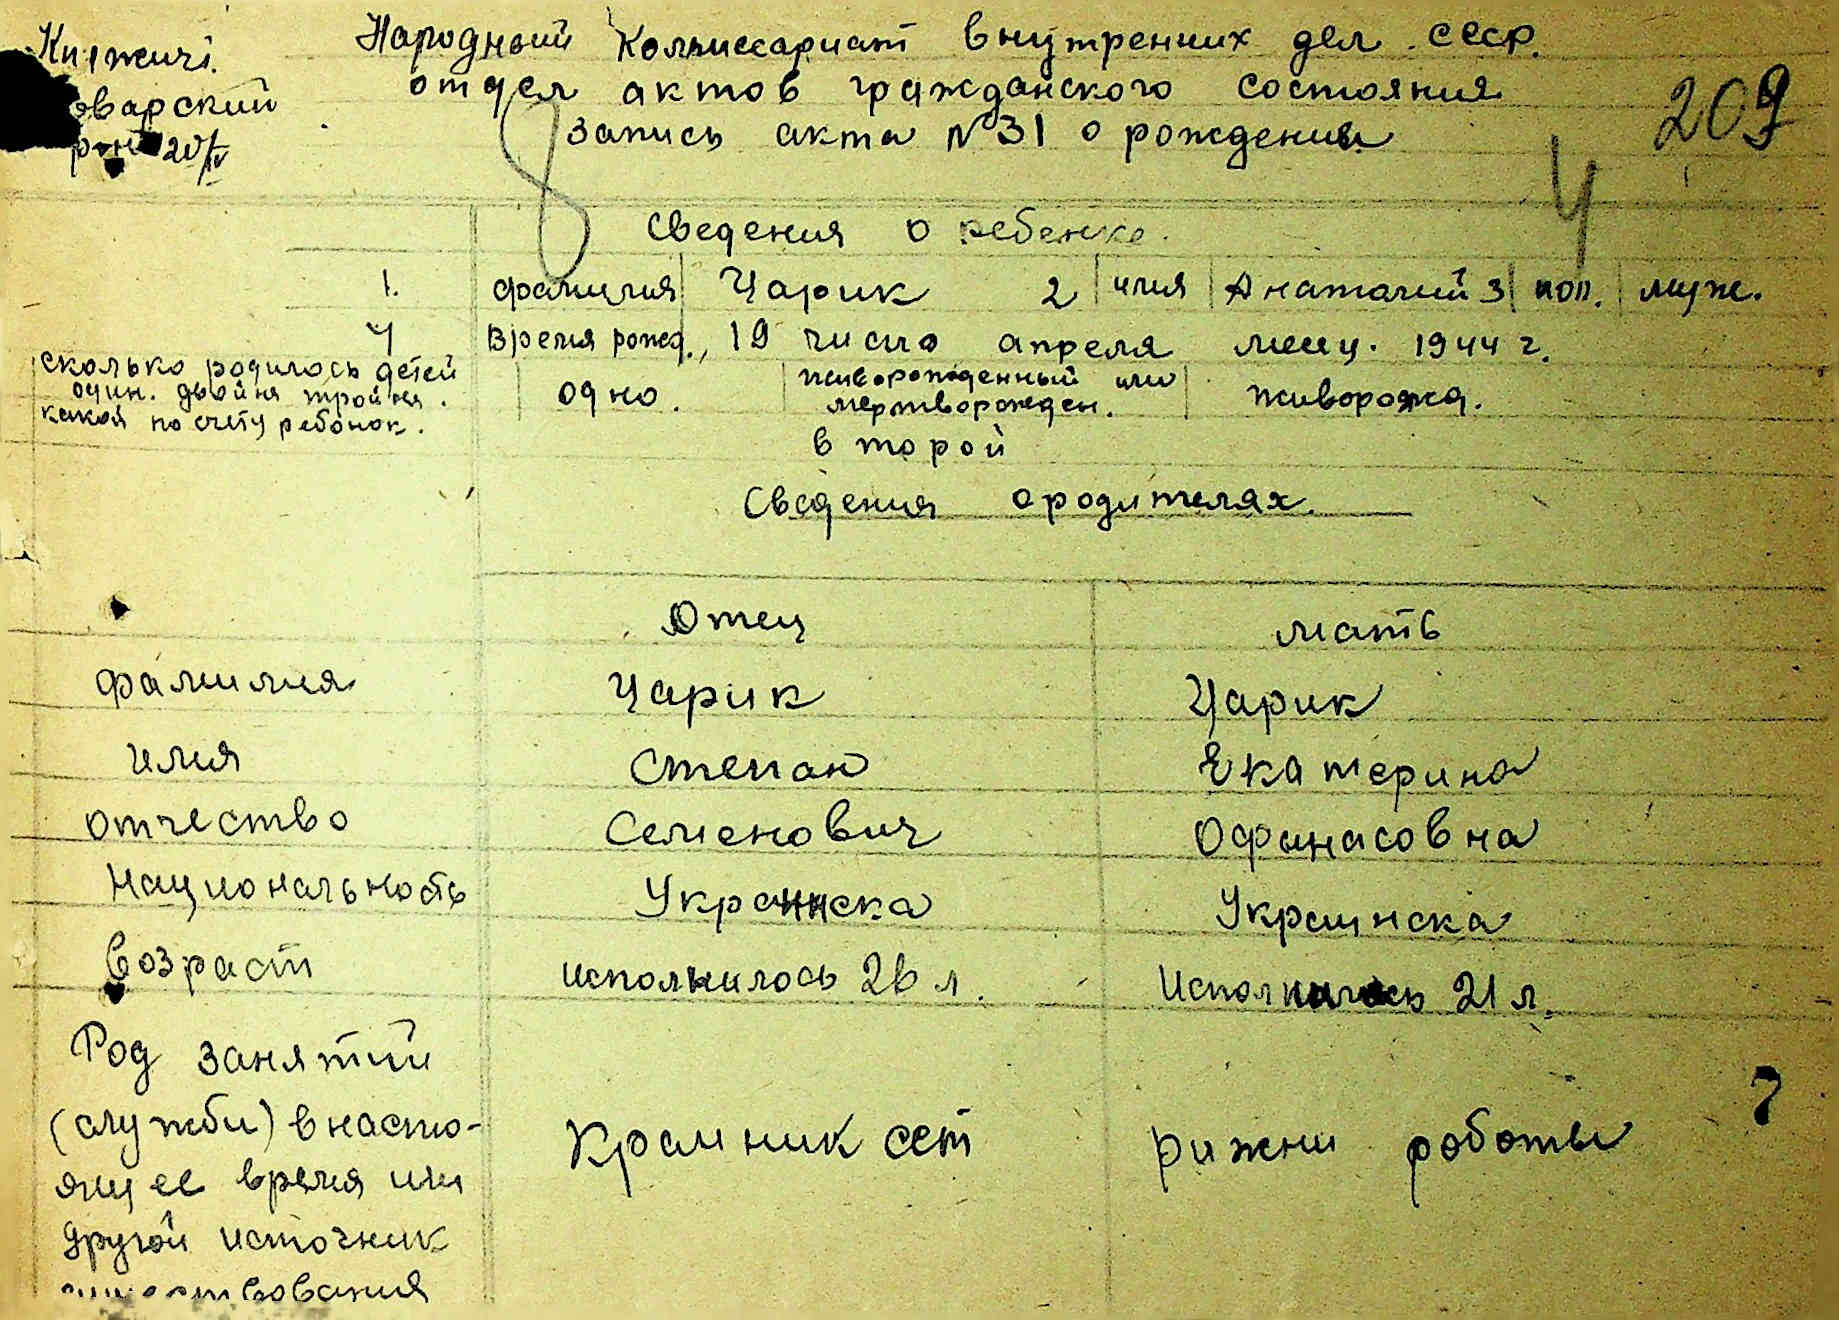 Княжичі
оварский
рон 20/IV
Народный Комиссариат внутренних дел СССР.
отдел актов гражданского состояния
запись акта №31 о рождении
209
Сведения о ребенке.
1. фамилия Царик 2 имя Анатолий 3 пол. муж.
4 Время рожд., 19 число апреля месяц. 1944 г.
сколько родилось детей
один. двойня тройня.
какой по счету ребонок.
одно. живорожденный или
мертворожден. живорожд.
второй
Сведения о родителях.
Отец мать
фамилия Царик Царик
имя Степан Екатерина
отчество Семенович Офанасовна
Национальность Украинска Украинска
Возраст исполнилось 26 л. Исполнилось 21 л.
Род занятий
(службы) в насто-
ящее время или
другой источник
существования
сст рижни роботы
7